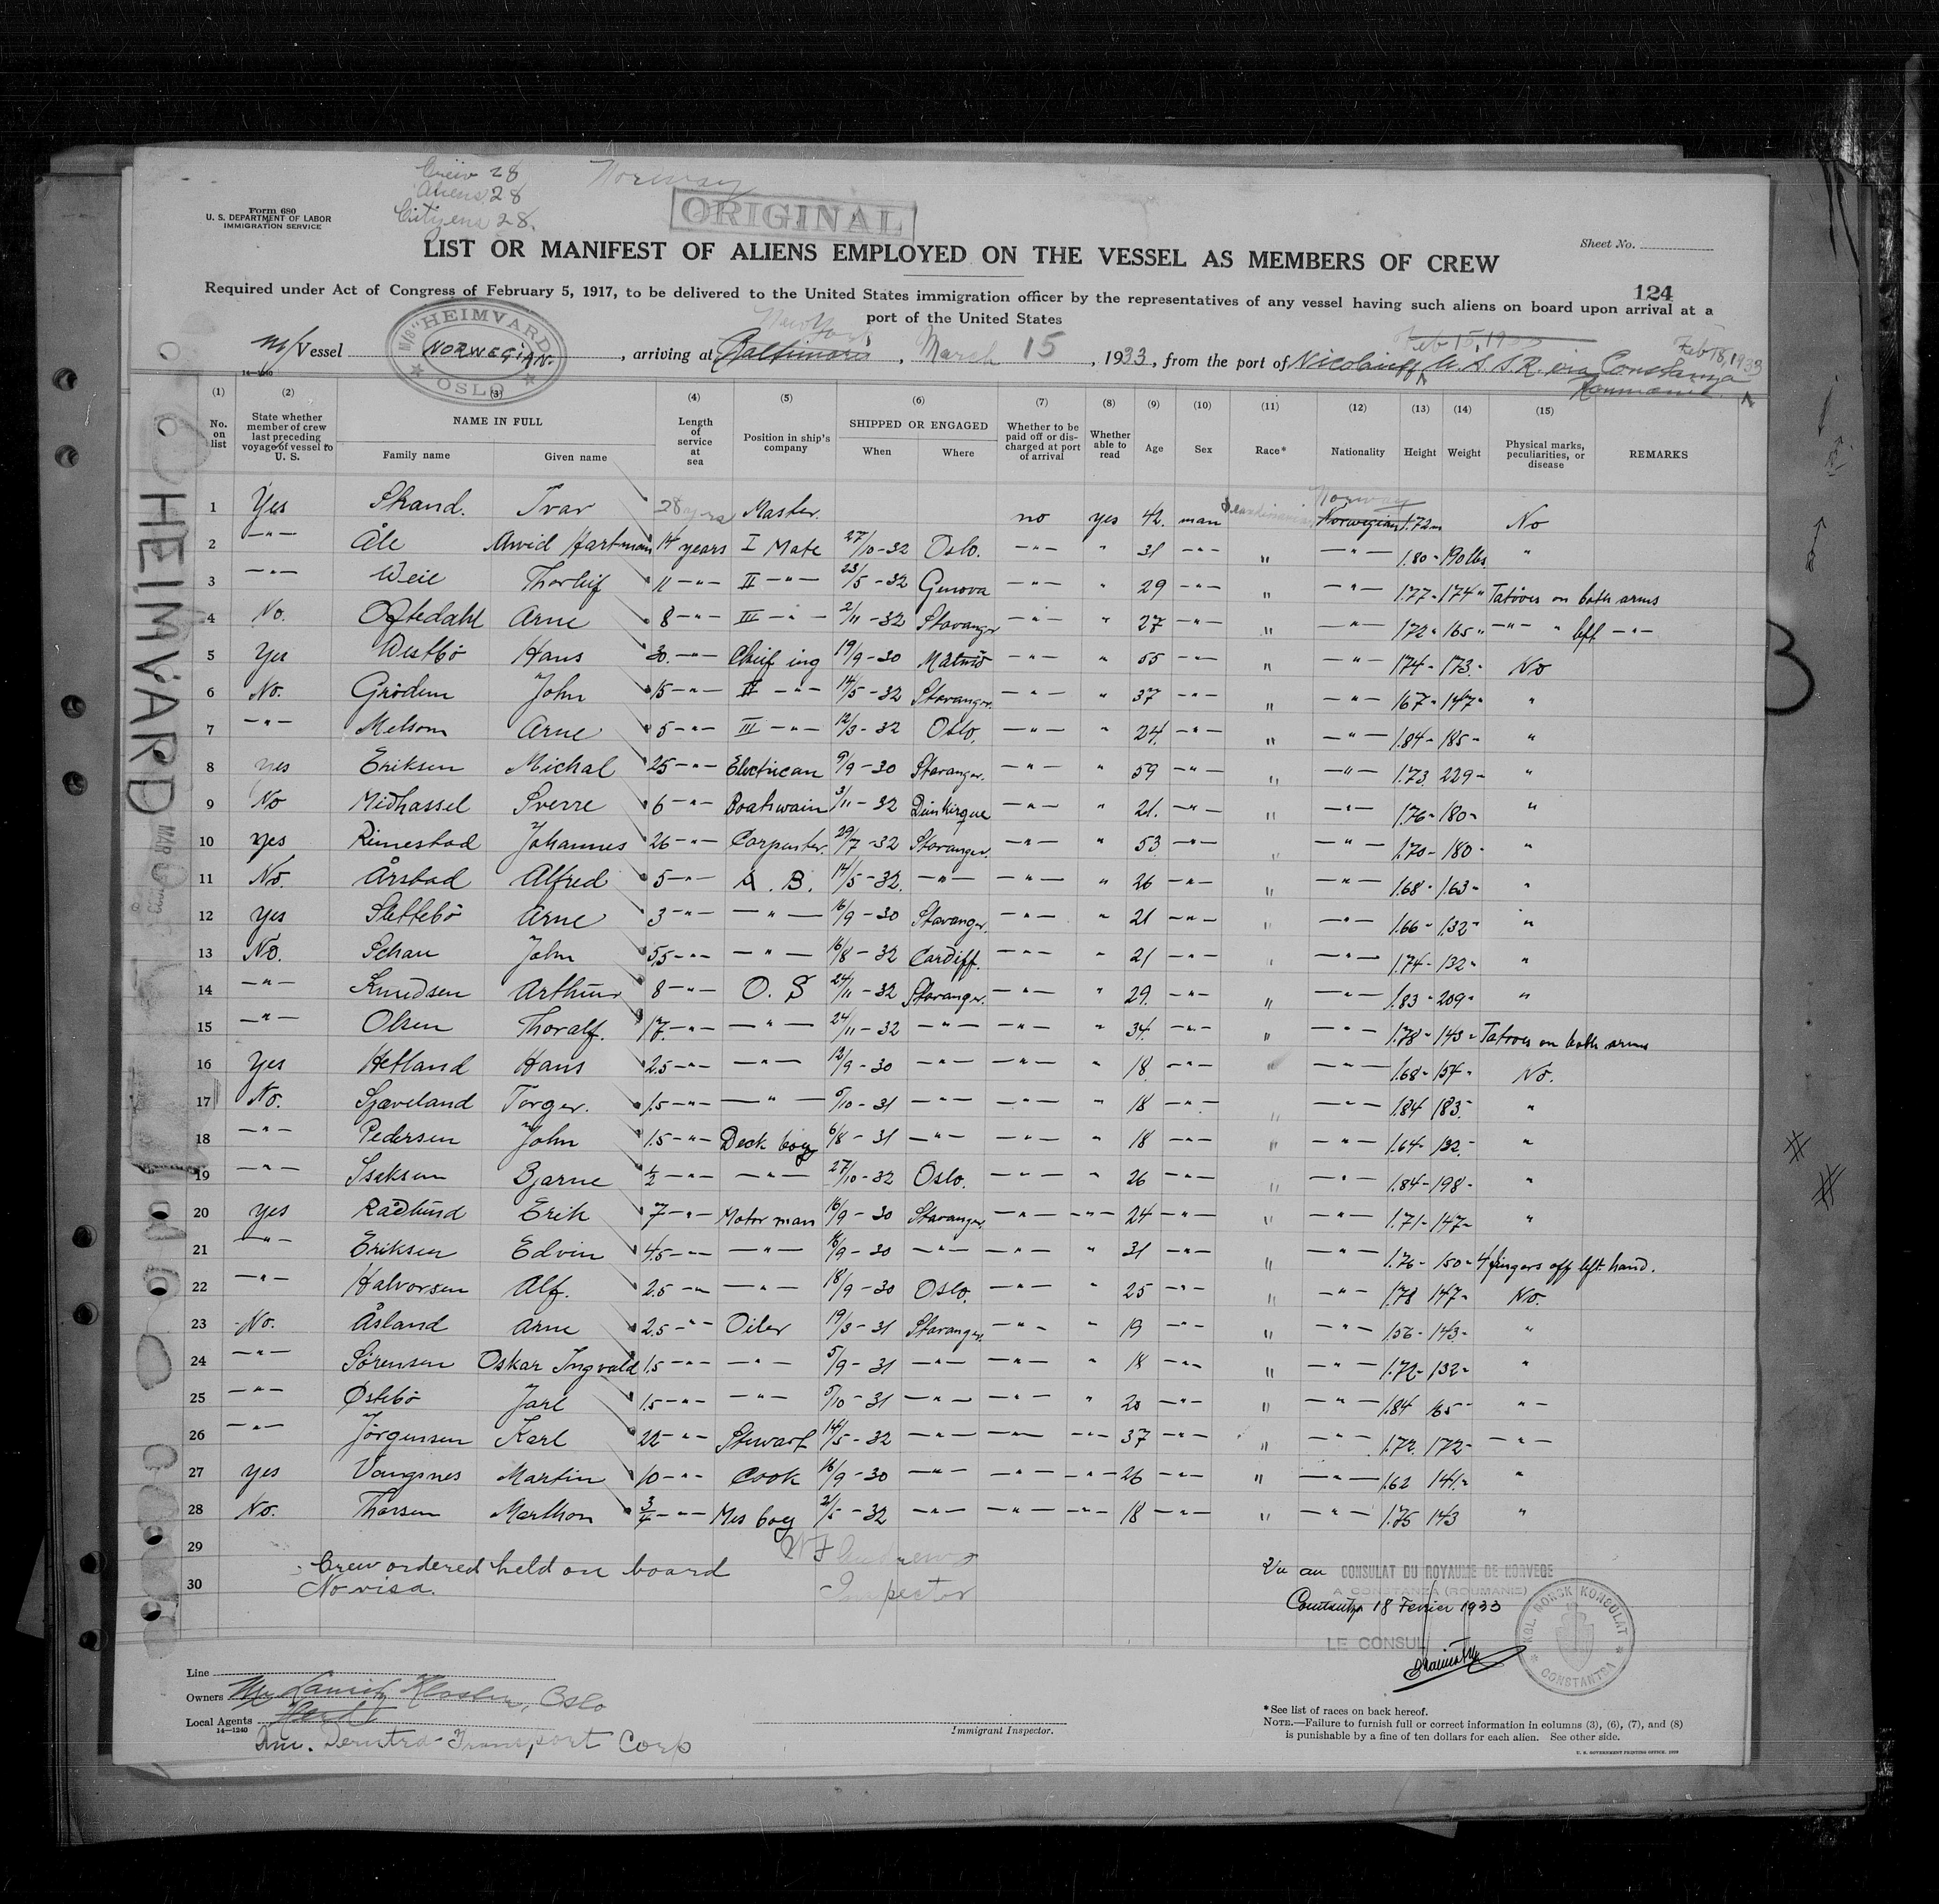 Crew 28
Aliens 28
Citizens 28.
Norway
ORIGINAL
Form 680
U. S. DEPARTMENT OF LABOR
IMMIGRATION SERVICE
Sheet No.
LIST OR MANIFEST OF ALIENS EMPLOYED ON THE VESSEL AS MEMBERS OF CREW
124
Required under Act of Congress of February 5, 1917, to be delivered to the United States immigration officer by the representatives of any vessel having such aliens on board upon arrival at a
port of the United States
New York
Feb 15, 1933 Feb 18, 1933
M/Vessel M/S "HEIMVARD" NORWEGIAN. OSLO , arriving at Baltimore , March 15 , 1933, from the port of Nicolaieff U. S. S. R. via Constanza
Roumania
14—1240
(1) (2) (3) (4) (5) (6) (7) (8) (9) (10) (11) (12) (13) (14) (15)
No. on list State whether member of crew last preceding voyage of vessel to U. S. NAME IN FULL Family name Given name Length of service at sea Position in ship's company SHIPPED OR ENGAGED When Where Whether to be paid off or discharged at port of arrival Whether able to read Age Sex Race* Nationality Height Weight Physical marks, peculiarities, or disease REMARKS
Norway
1 Yes Skand. Ivar 28 yrs Master. no yes 42. man Scandinavian Norwegian 1.72m No
2 —"— Åle Arvid Hartmann 14 years I Mate 27/10-32 Oslo. —"— " 31 —"— " —"— 1.80 - 190 lbs. "
3 —"— Weie Thorleif 11 —"— II —"— 23/5-32 Genova —"— " 29 —"— " —"— 1.77 - 174 " Tatoves on both arms
4 No. Oftedahl Arne 8 —"— III —"— 2/11-32 Stavanger —"— " 27 —"— " —"— 172 " 165 " —"— " left —"—
5 Yes Westbö Hans 30. —"— Chief ing 19/9-30 Malmö —"— " 55 —"— " —"— 174 - 173 - No
6 No. Grödem John 15 —"— II —"— 14/5-32 Stavanger. —"— " 37 —"— " —"— 167 - 147 - "
7 —"— Melsom Arne 5 —"— III —"— 12/3-32 Oslo. —"— " 24. —"— " —"— 1.84 - 185 - "
8 yes Eriksen Michal 25 —"— Electrican 9/9-30 Stavanger. —"— " 59 —"— " —"— 1.73 229 - "
9 No Midhassel Sverre 6 —"— Boatswain 3/11-32 Dunkirque —"— " 21. —"— " —"— 1.76 - 180 - "
10 yes Rimestad Johannes 26 —"— Carpenter. 29/7-32 Stavanger. —"— " 53 —"— " —"— 1.70 - 180 - "
11 No. Årstad Alfred 5 —"— A. B. 14/5-32. —"— —"— " 26 —"— " —"— 1.68 - 163 - "
12 Yes Slettebö Arne 3 —"— —"— 16/9-30 Stavanger. —"— " 21 —"— " —"— 1.66 - 132 - "
13 No. Schau John 5,5 —"— —"— 16/8-32 Cardiff. —"— " 21 —"— " —"— 1.74 - 132 - "
14 —"— Knudsen Arthur 8 —"— O. S 24/11-32 Stavanger. —"— " 29. —"— " —"— 1.83 - 209 - "
15 —"— Olsen Thoralf. 17. —"— —"— 24/11-32 —"— —"— " 34. —"— " —"— 1.78 - 143 - Tatoves on both arms
16 Yes Hetland Hans 2.5 —"— —"— 12/9-30 —"— —"— " 18 —"— " —"— 1.68 - 154 - No.
17 No. Sjaveland Torger. 1.5 —"— —"— 5/10-31 —"— —"— " 18 —"— " —"— 1.84 183. "
18 —"— Pedersen John 1.5 —"— Deck boy 6/8-31 —"— —"— " 18 —"— " —"— 1.64 - 132. "
19 —"— Isaksen Bjarne 1/2 —"— —"— 27/10-32 Oslo. —"— " 26 —"— " —"— 1.84 - 198 - "
20 yes Rädlund Erik 7 —"— Motor man 16/9-30 Stavanger —"— —"— 24 —"— " —"— 1.71 - 147 - "
21 —"— Eriksen Edvin 4.5 —"— —"— 16/9-30 —"— —"— " 31 —"— " —"— 1.76 - 150 - 4 fingers off left hand.
22 —"— Halvorsen Alf. 2.5 —"— —"— 18/9-30 Oslo. —"— " 25 —"— " —"— 1.78 147 - No.
23 No. Åsland Arne 2.5 —"— Oiler 19/3-31 Stavanger. —"— " 19 —"— " —"— 1.56 - 143 - "
24 —"— Sörensen Oskar Ingvald 1.5 —"— —"— 5/9-31 —"— —"— " 18 —"— " —"— 1.72 - 132 - "
25 —"— Östebö Jarl 1.5 —"— —"— 5/10-31 —"— —"— " 20 —"— " —"— 1.84 165 - " -
26 —"— Jörgensen Karl 22 —"— Stewart 14/5-32 —"— —"— —"— 37 —"— " —"— 1.72. 172 - —"—
27 yes Vangsnes Martin 10 —"— Cook 16/9-30 —"— —"— —"— 26 —"— " —"— 1.62 141 - "
28 No. Thorsen Marthon 3/4 —"— Mes boy 2/5-32 —"— —"— —"— 18 —"— " —"— 1.75 143 "
29
30
Crew ordered held on board
No visa.
Inspector
Vu au CONSULAT DU ROYAUME DE NORVEGE
A CONSTANZA (ROUMANIE)
Constantza 18 Fevrier 1933
LE CONSUL
KGL. NORSK KONSULAT
CONSTANTSA
HEIMVARD
3
Line
Owners Oslo
Local Agents
14—1240
Am. Derutra Transport Corp
Immigrant Inspector.
*See list of races on back hereof.
NOTE.—Failure to furnish full or correct information in columns (3), (6), (7), and (8)
is punishable by a fine of ten dollars for each alien. See other side.
U. S. GOVERNMENT PRINTING OFFICE: 1929